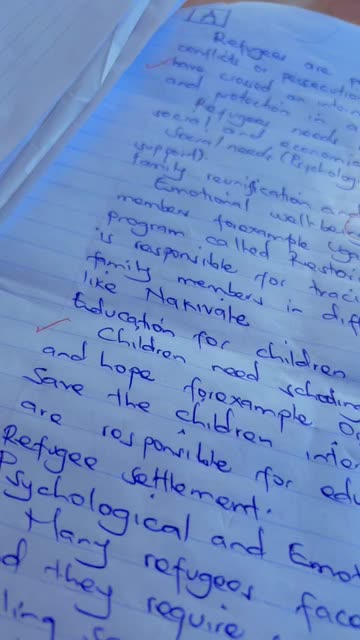 A
Refugees are
conflicts or persecution
have crossed an
and protection in a
Refugees needs
social and economic
Social needs (Psycholog
support).
family reunification and
Emotional wellbe
members forexample
program called Resto
is responsible for trac
family members in diff
like Nakivale
Education for children
Children need schooling
and hope forexample
Save the children inter
are responsible for edu
Refugee settlement.
Psychological and Emot
Many refugees face
d they require
ling